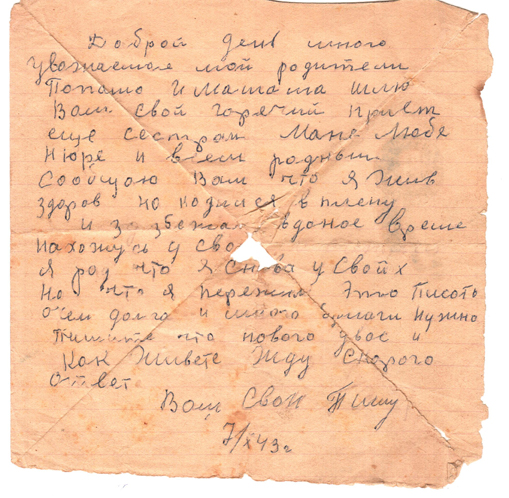 Доброй день много
уважаемая мой родители
Попашо и мамаша шлю
Вам свой горячий привет
еще сестрам Мане Любе
Нюре и всем родным
Сообщаю Вам что я жив
здоров находился в плену
и збежал вданое время
нахожусь у сво
я рад что я снова у своих
Но что я пережил Это писать
очен долго и много бумаги нужно
Пишите что нового двас и
Как живете Жду скорого
ответ
Ваш Свой Пишу
7/XI 43 г